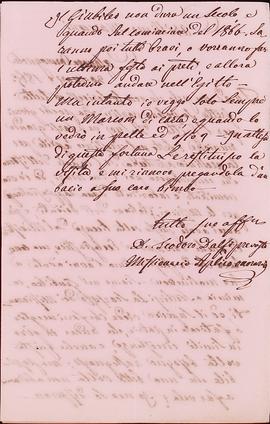 Il Giubileo non dura un secolo e
quando sul cominciare del 1866. Sa
ranno poi tutti bravi, o vorranno far
l'ultima festa ai preti e allora
potremo andare nell'Egitto
Ma intanto io veggo solo sempre
un Marconi di carta e quando lo
vedrò in pelle ed ossa
di questa fortuna Le restituisco la
visita e mi rinnovo pregandola d'un
bacio a suo caro bimbo
tutto suo aff
D. Teodoro Dalfi
Missionario Aplico